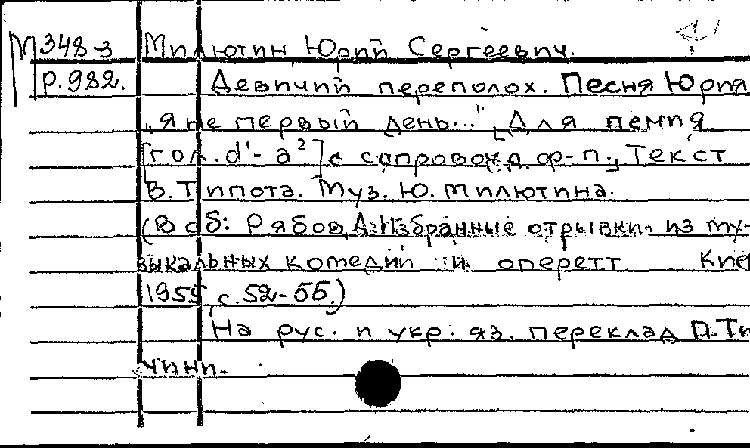 М348-з Милютин, Юрий Сергеевич.
р.982. Девичий переполох. Песня Юрия
„Я не первый день..." Для пения
[гол. d'- a²] с сопровожд. ф-п., Текст
В. Типота. Муз. Ю. Милютина.
(В сб: Рябов, А. Избранные отрывки из му-
зыкальных комедий и оперетт
1955, с. 52-55.)
На рус. и укр. яз. переклад П. Ти
чини.